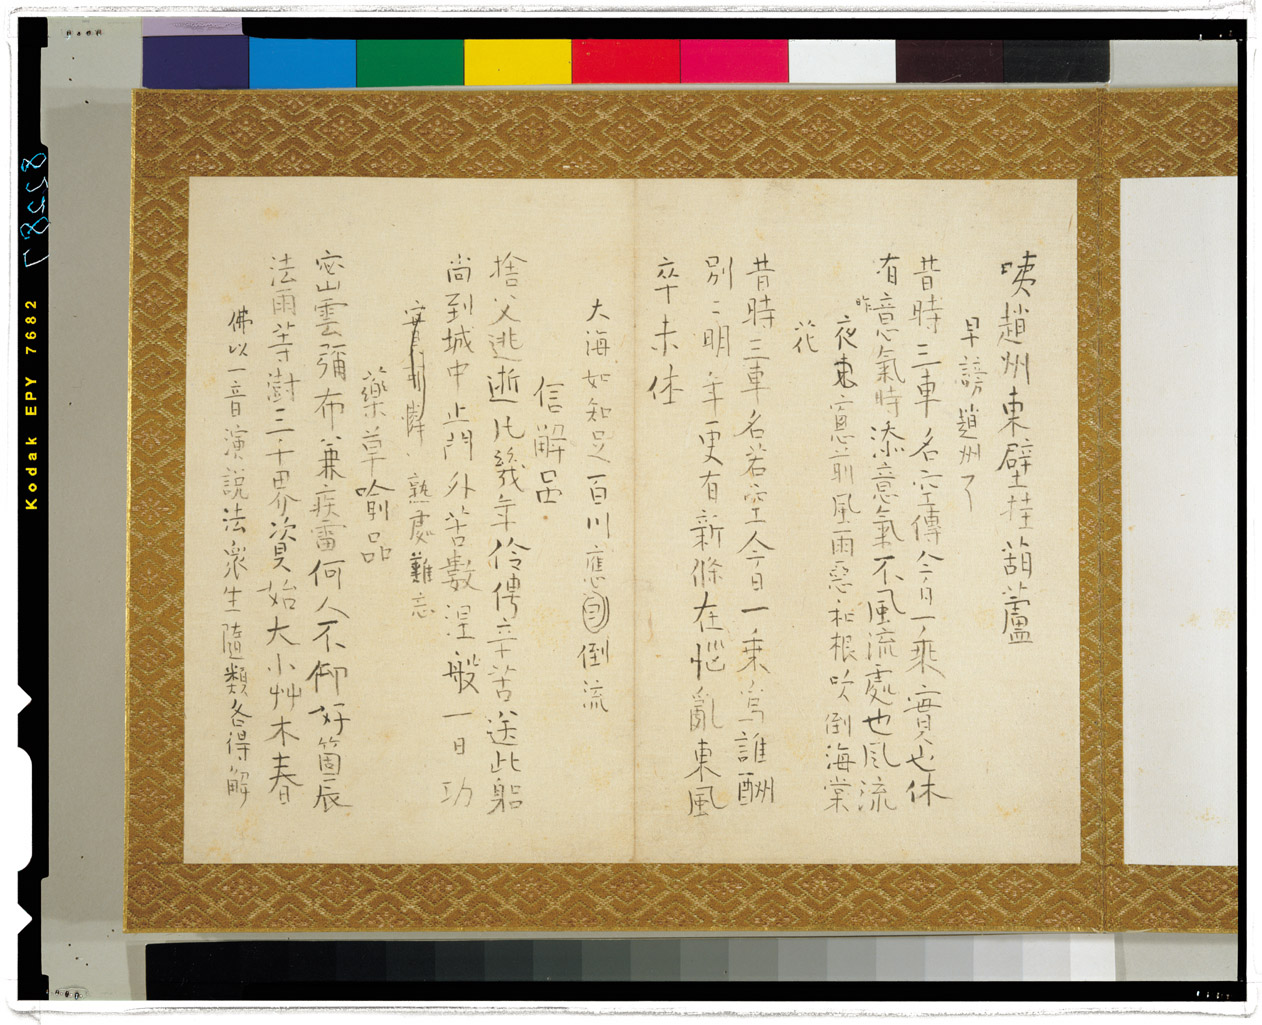 咦趙州東壁挂葫蘆
早謗趙州了
昔時三車名空傳今日一乘實也休
有意氣時添意氣不風流處也風流
昨夜東窓前風雨惡和根吹倒海棠
花
昔時三車名若空今日一乘為誰酬
別々明年更有新條在惱亂東風
卒未休
大海如知足百川應自倒流
信解品
捨父逃逝凡幾年伶俜辛苦送此躬
尚到城中止門外苦數涅般一日功
熟處難忘
藥草喻品
密雲彌布兼疾雷何人不仰好箇辰
法雨等澍三千界資始大小艸木春
佛以一音演說法衆生隨類各得解
Kodak EPY 7682